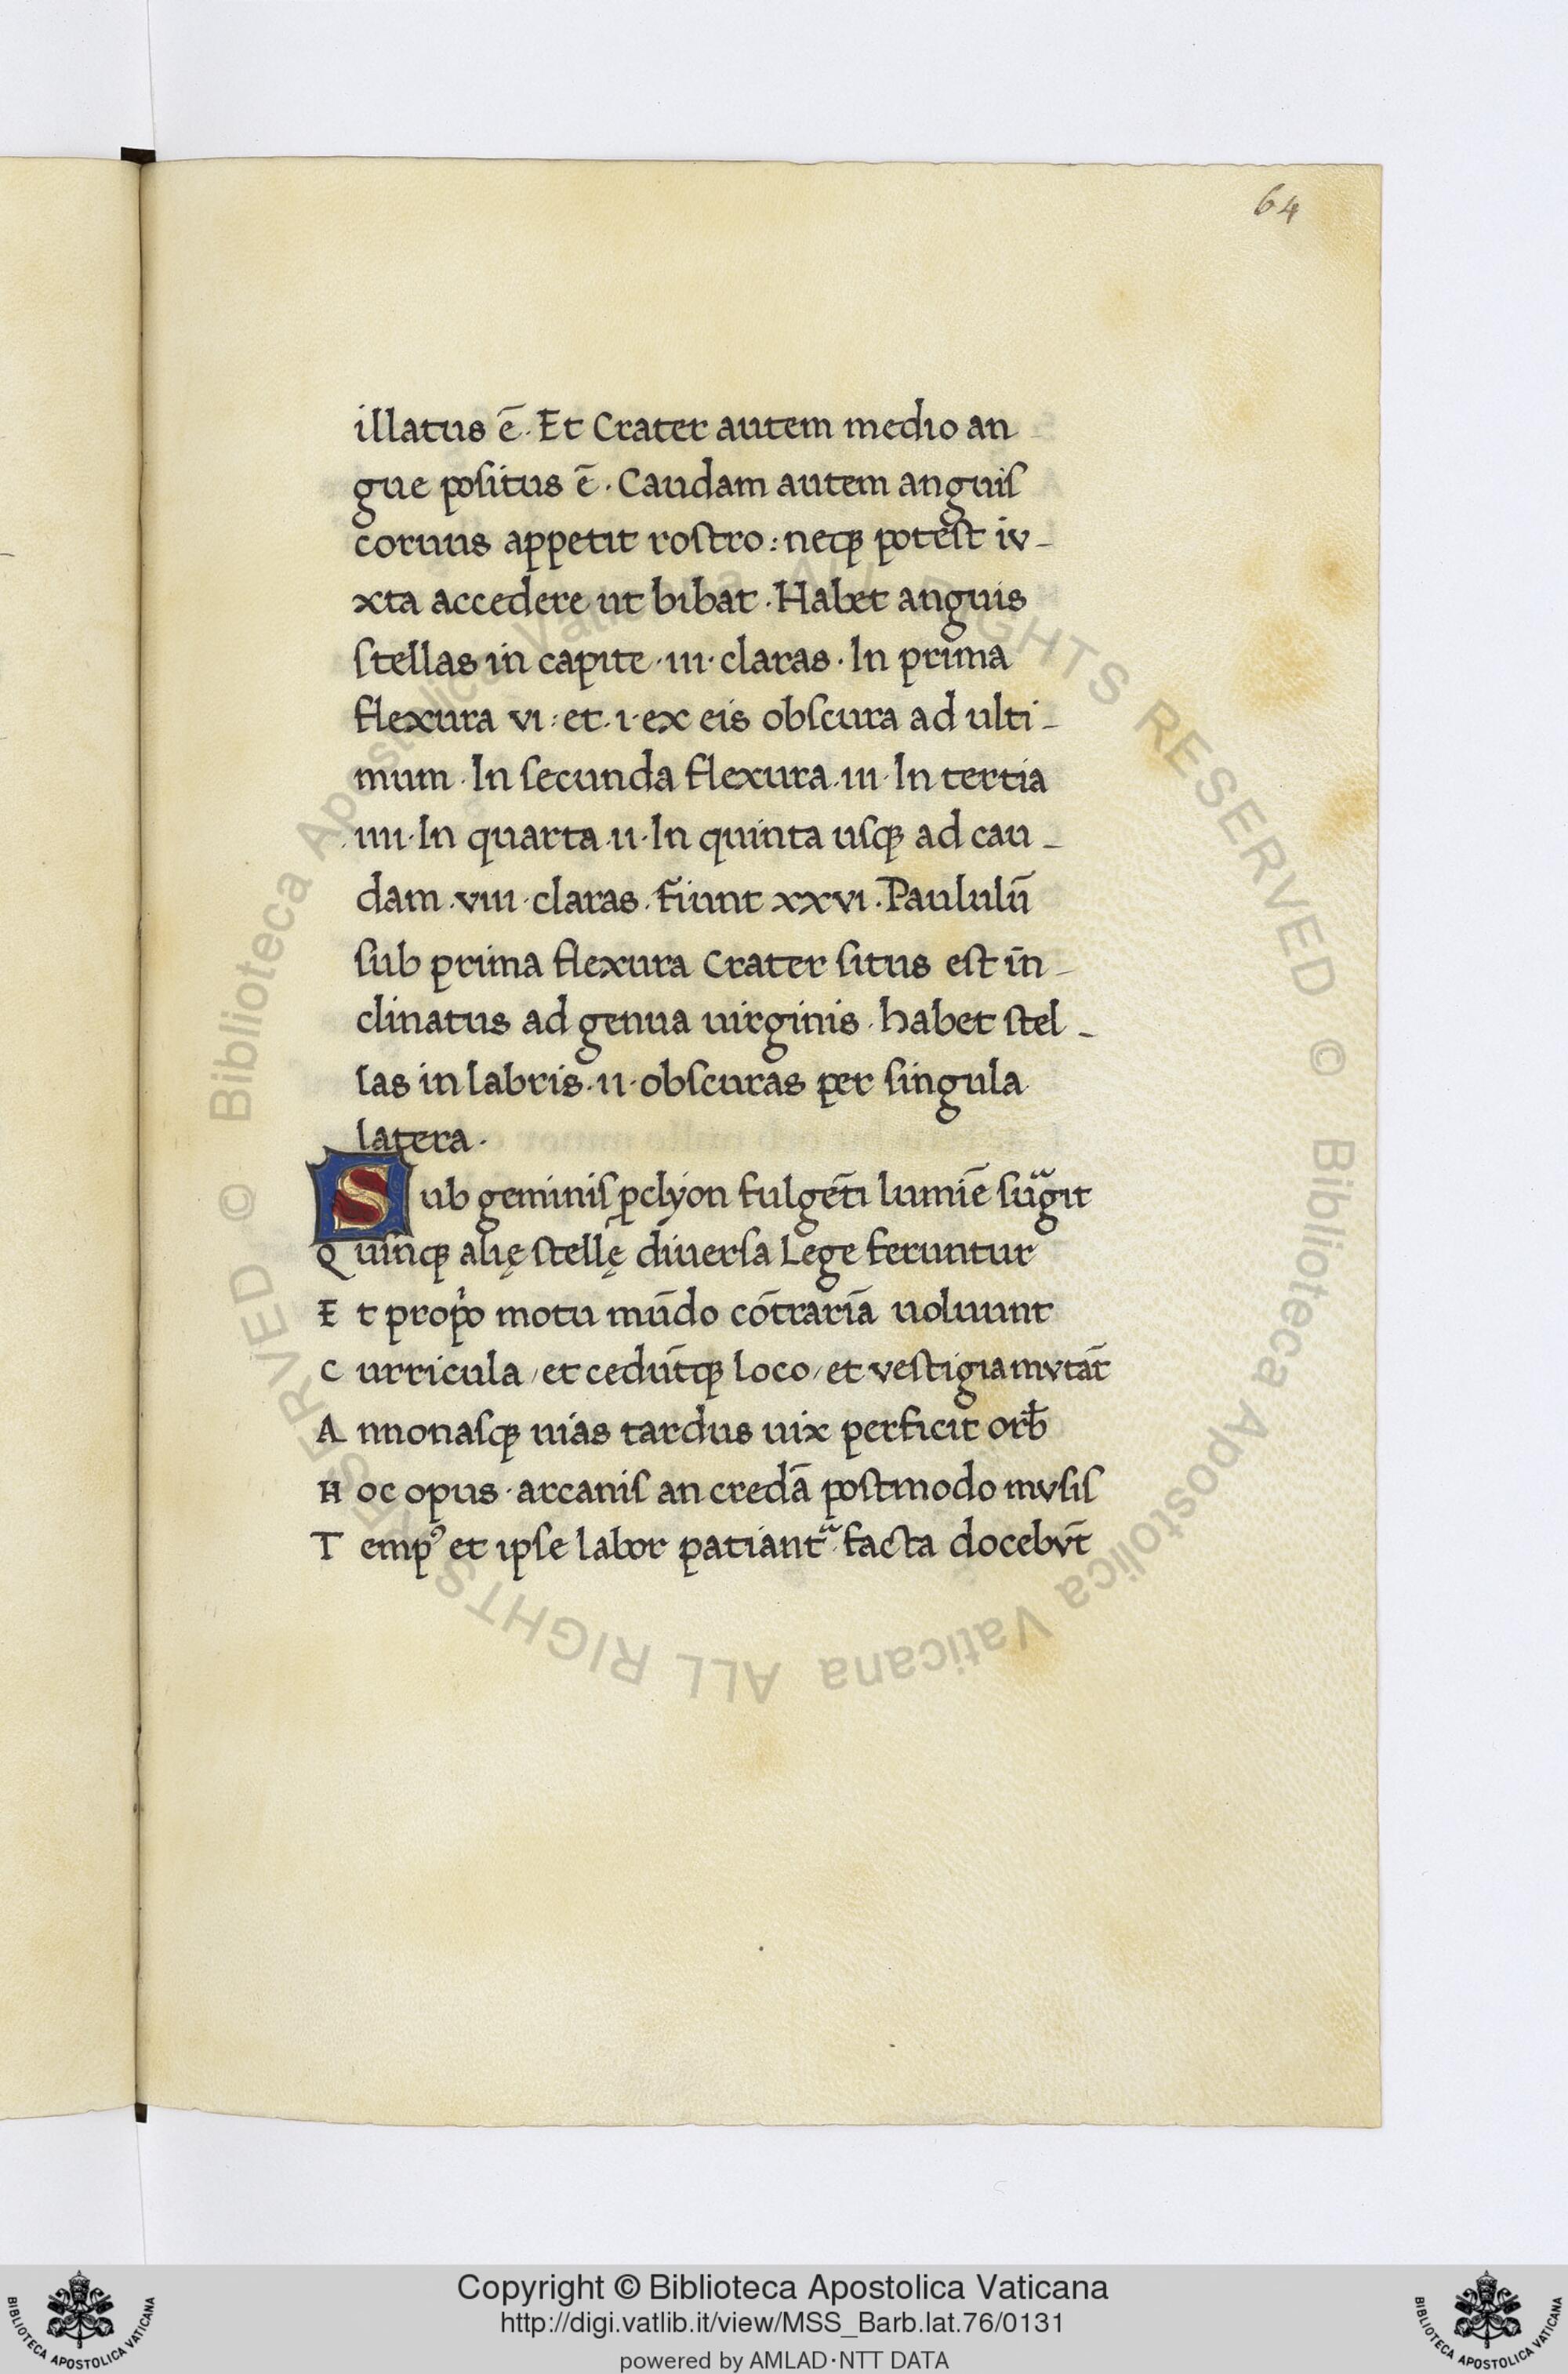 64
illatus ē. Et Crater autem medio an
gue poſitus ē. Caudam autem anguiſ
coruus appetit roſtro: neqꝫ poteſt iv-
xta accedere ut bibat. Habet anguis
ſtellas in capite ·iii· claras. In prima
flexura vi: et ·i· ex eis obſcura ad ulti-
mum. In ſecunda flexura ·iii· In tertia
·iiii· In quarta ·ii· In quinta uſqꝫ ad cau-
dam ·viii· claras. fiunt xxvi. Paululū
ſub prima flexura Crater ſitus eſt in-
clinatus ad genua uirginis. habet ſtel-
las in labris ·ii· obſcuras per ſingula
latera.
Sub geminiſ p̱clyon fulgēti lumīe ſuᷓgit
Quinqꝫ alię ſtellę diuerſa Lege feruntur
Et prop̲o motu mūdo cōtrariā uoluunt
Curricula / et cedūtqꝫ loco / et veſtigia mvtāt
Annonaſqꝫ uias tardus uix perficit orb̄
Hoc opus · arcaniſ an credā poſtmodo mvſiſ
Temp᷒ et ipſe labor patiantᷓ facta docebv̄t
© Biblioteca Apostolica Vaticana ALL RIGHTS RESERVED © Biblioteca Apostolica Vaticana ALL RIGHTS RESERVED
Copyright © Biblioteca Apostolica Vaticana
http://digi.vatlib.it/view/MSS_Barb.lat.76/0131
powered by AMLAD·NTT DATA
BIBLIOTECA APOSTOLICA VATICANA
BIBLIOTECA APOSTOLICA VATICANA